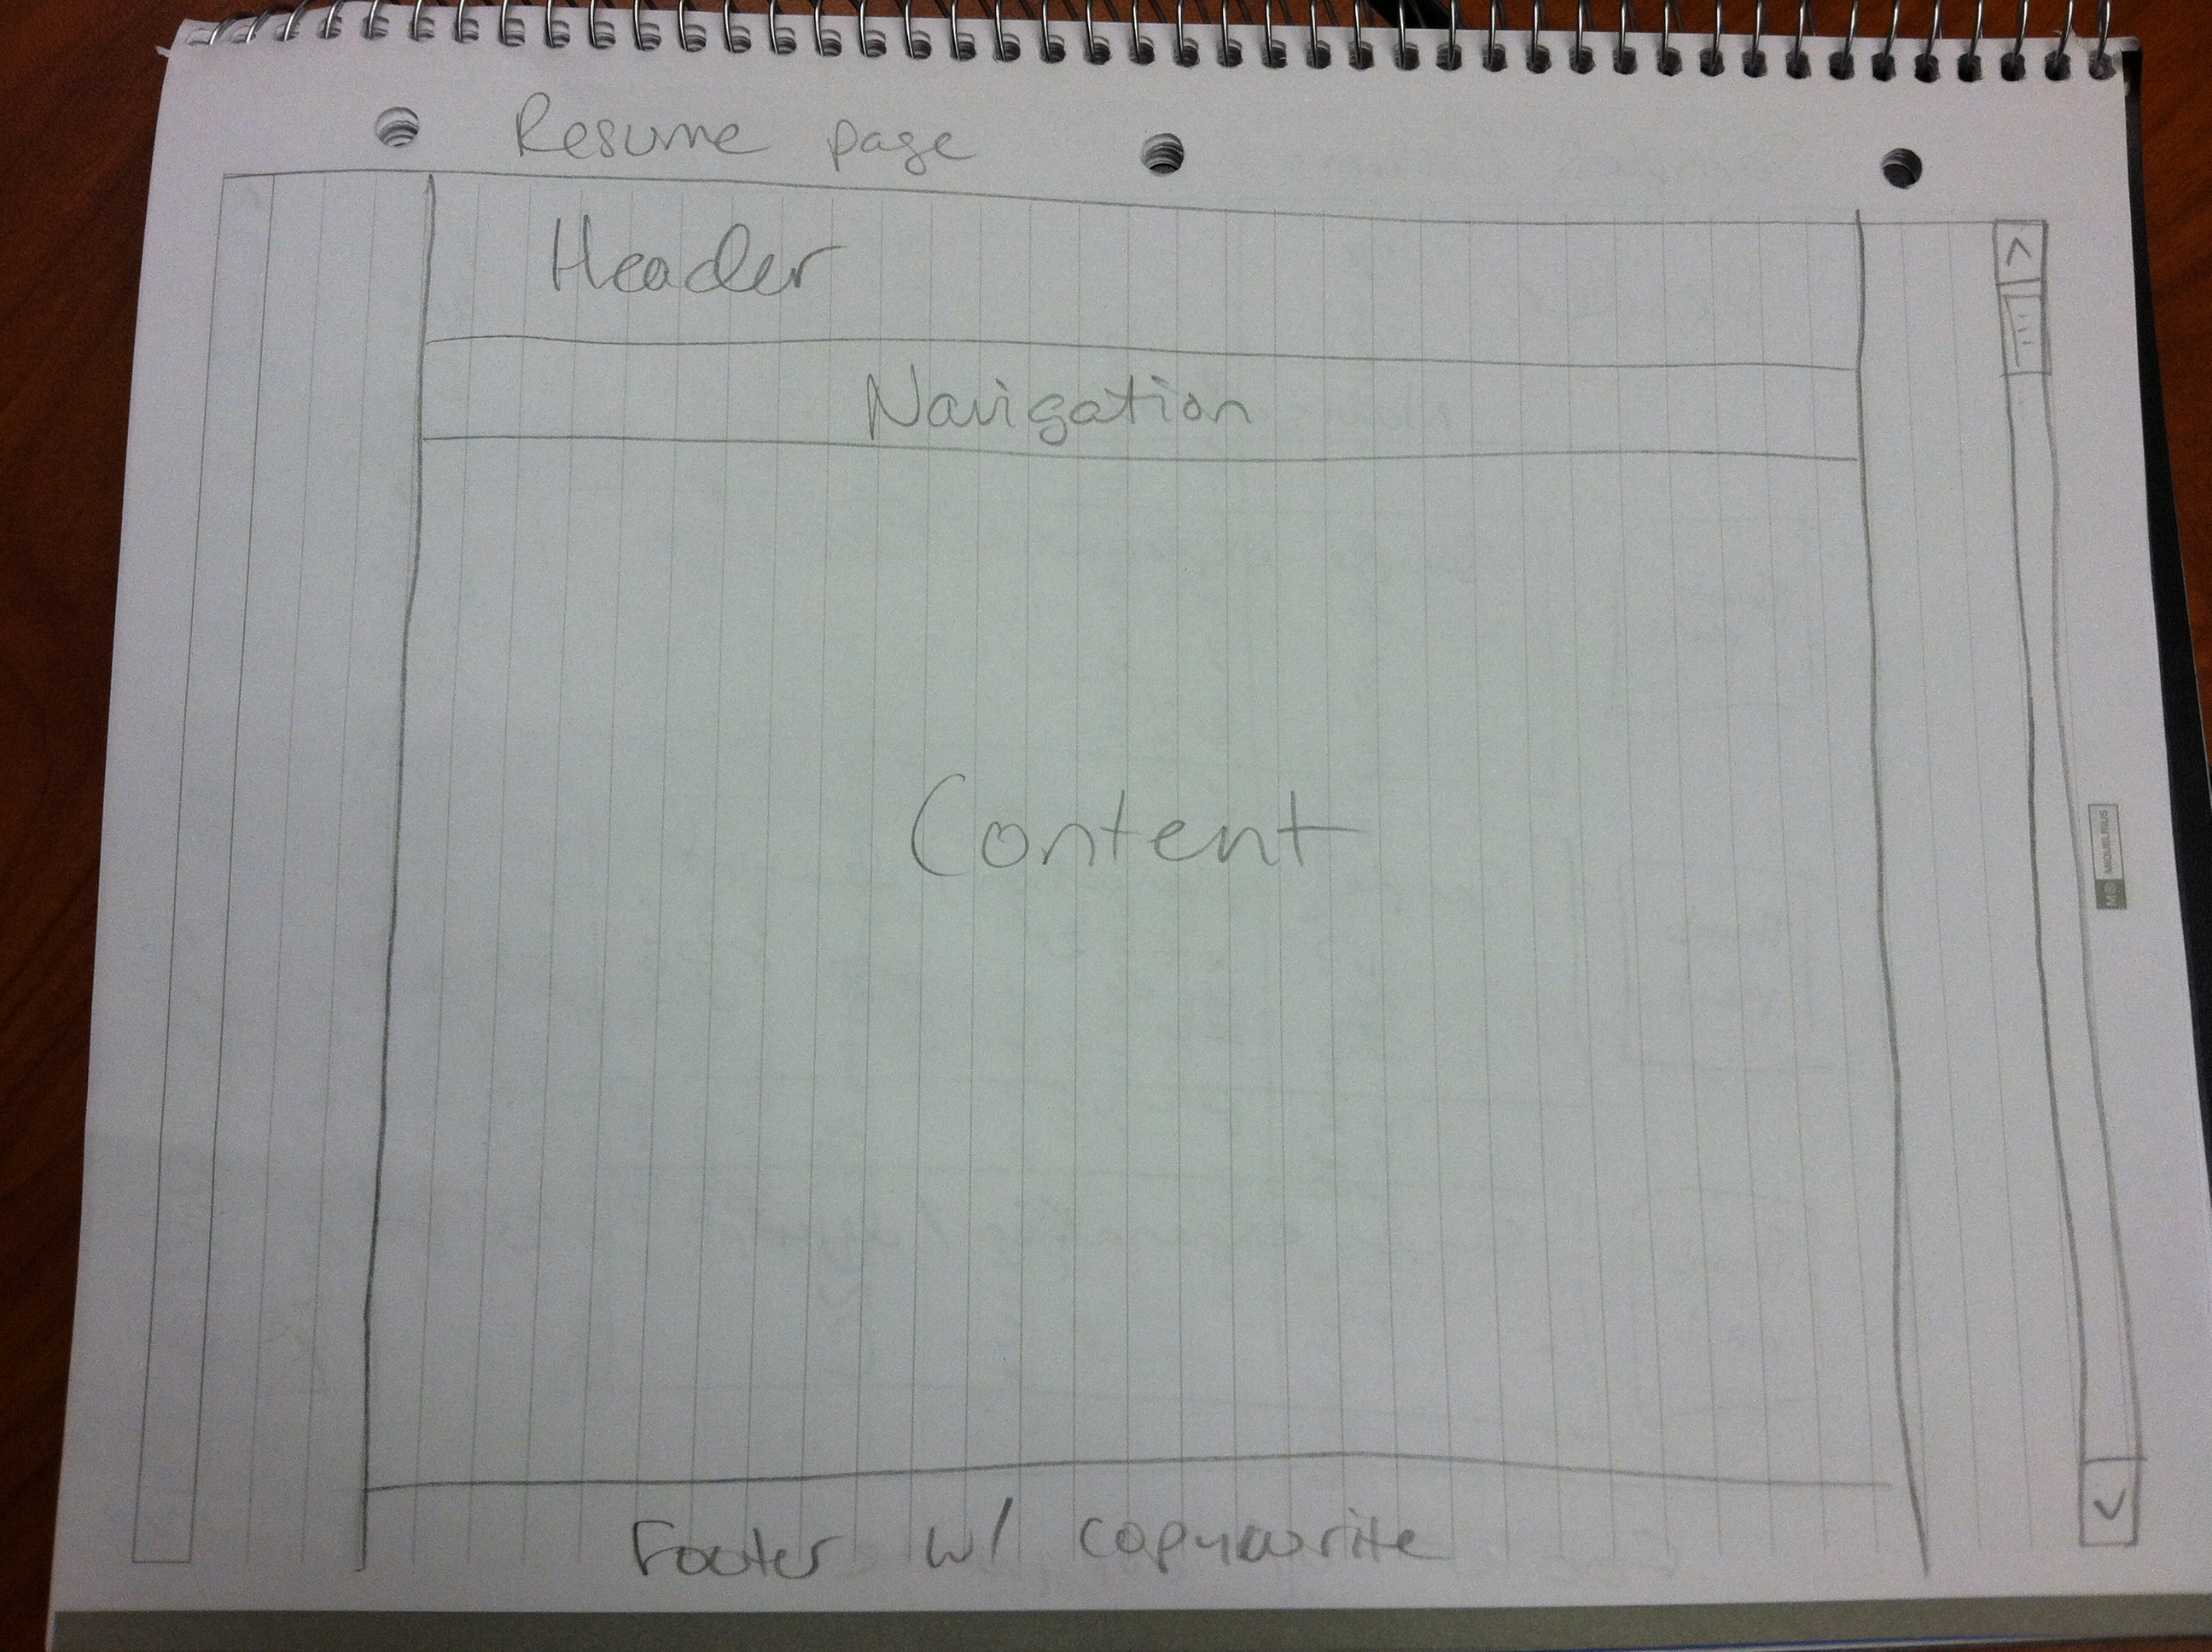 Resume page
Header
Navigation
Content
Footer w/ copywrite
MIQUELRIUS